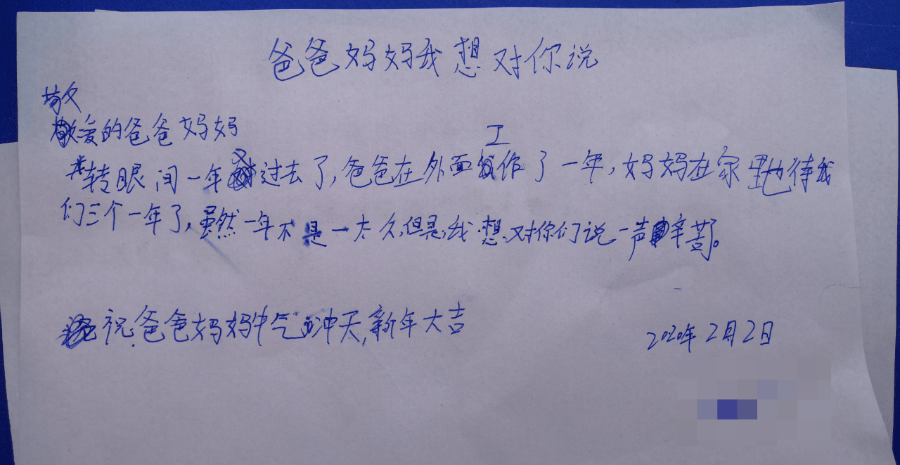 爸爸妈妈我想对你说
敬
爱的爸爸妈妈
转眼间一年过去了,爸爸在外面工作了一年,妈妈在家里也待我
们三个一年了,虽然一年不是一太久,但是,我想对你们说一声辛苦。
祝爸爸妈妈牛气冲天,新年大吉
2020年2月2日